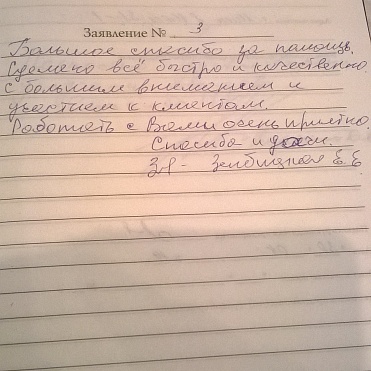 Заявление № 3
Большое спасибо за помощь.
Сделано всё быстро и качественно
с большим вниманием и
участием к клиентам.
Работать с Вами очень приятно.
Спасибо и удачи.